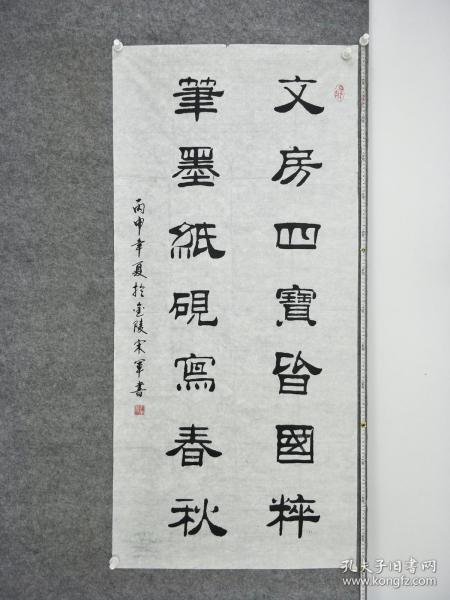 文房四寶皆國粹
筆墨紙硯寫春秋
丙申年夏於金陵宋軍書
孔夫子旧书网
www.kongfz.com